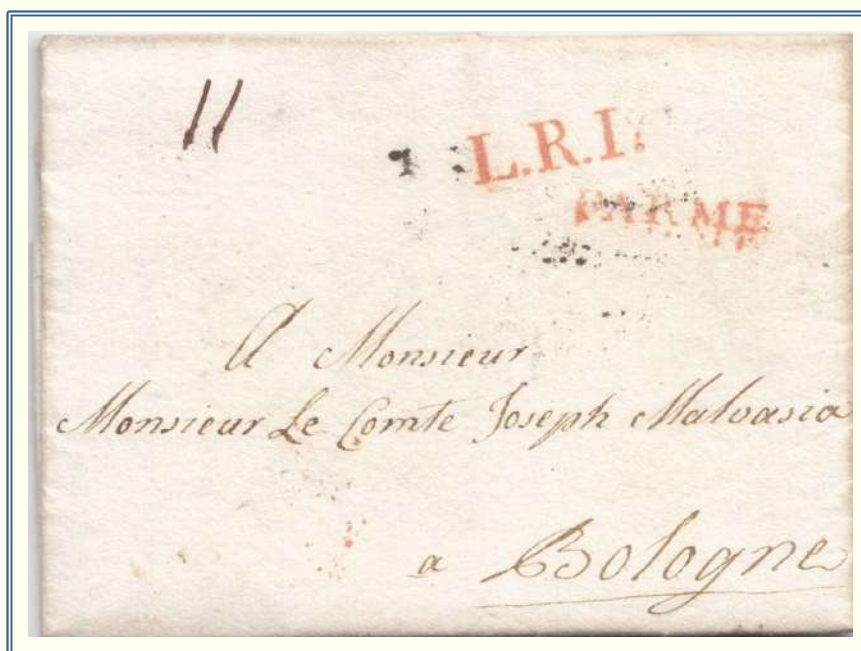 11
L.R.I.
PARME
A Monsieur
Monsieur Le Comte Joseph Malvasia
a Bologne